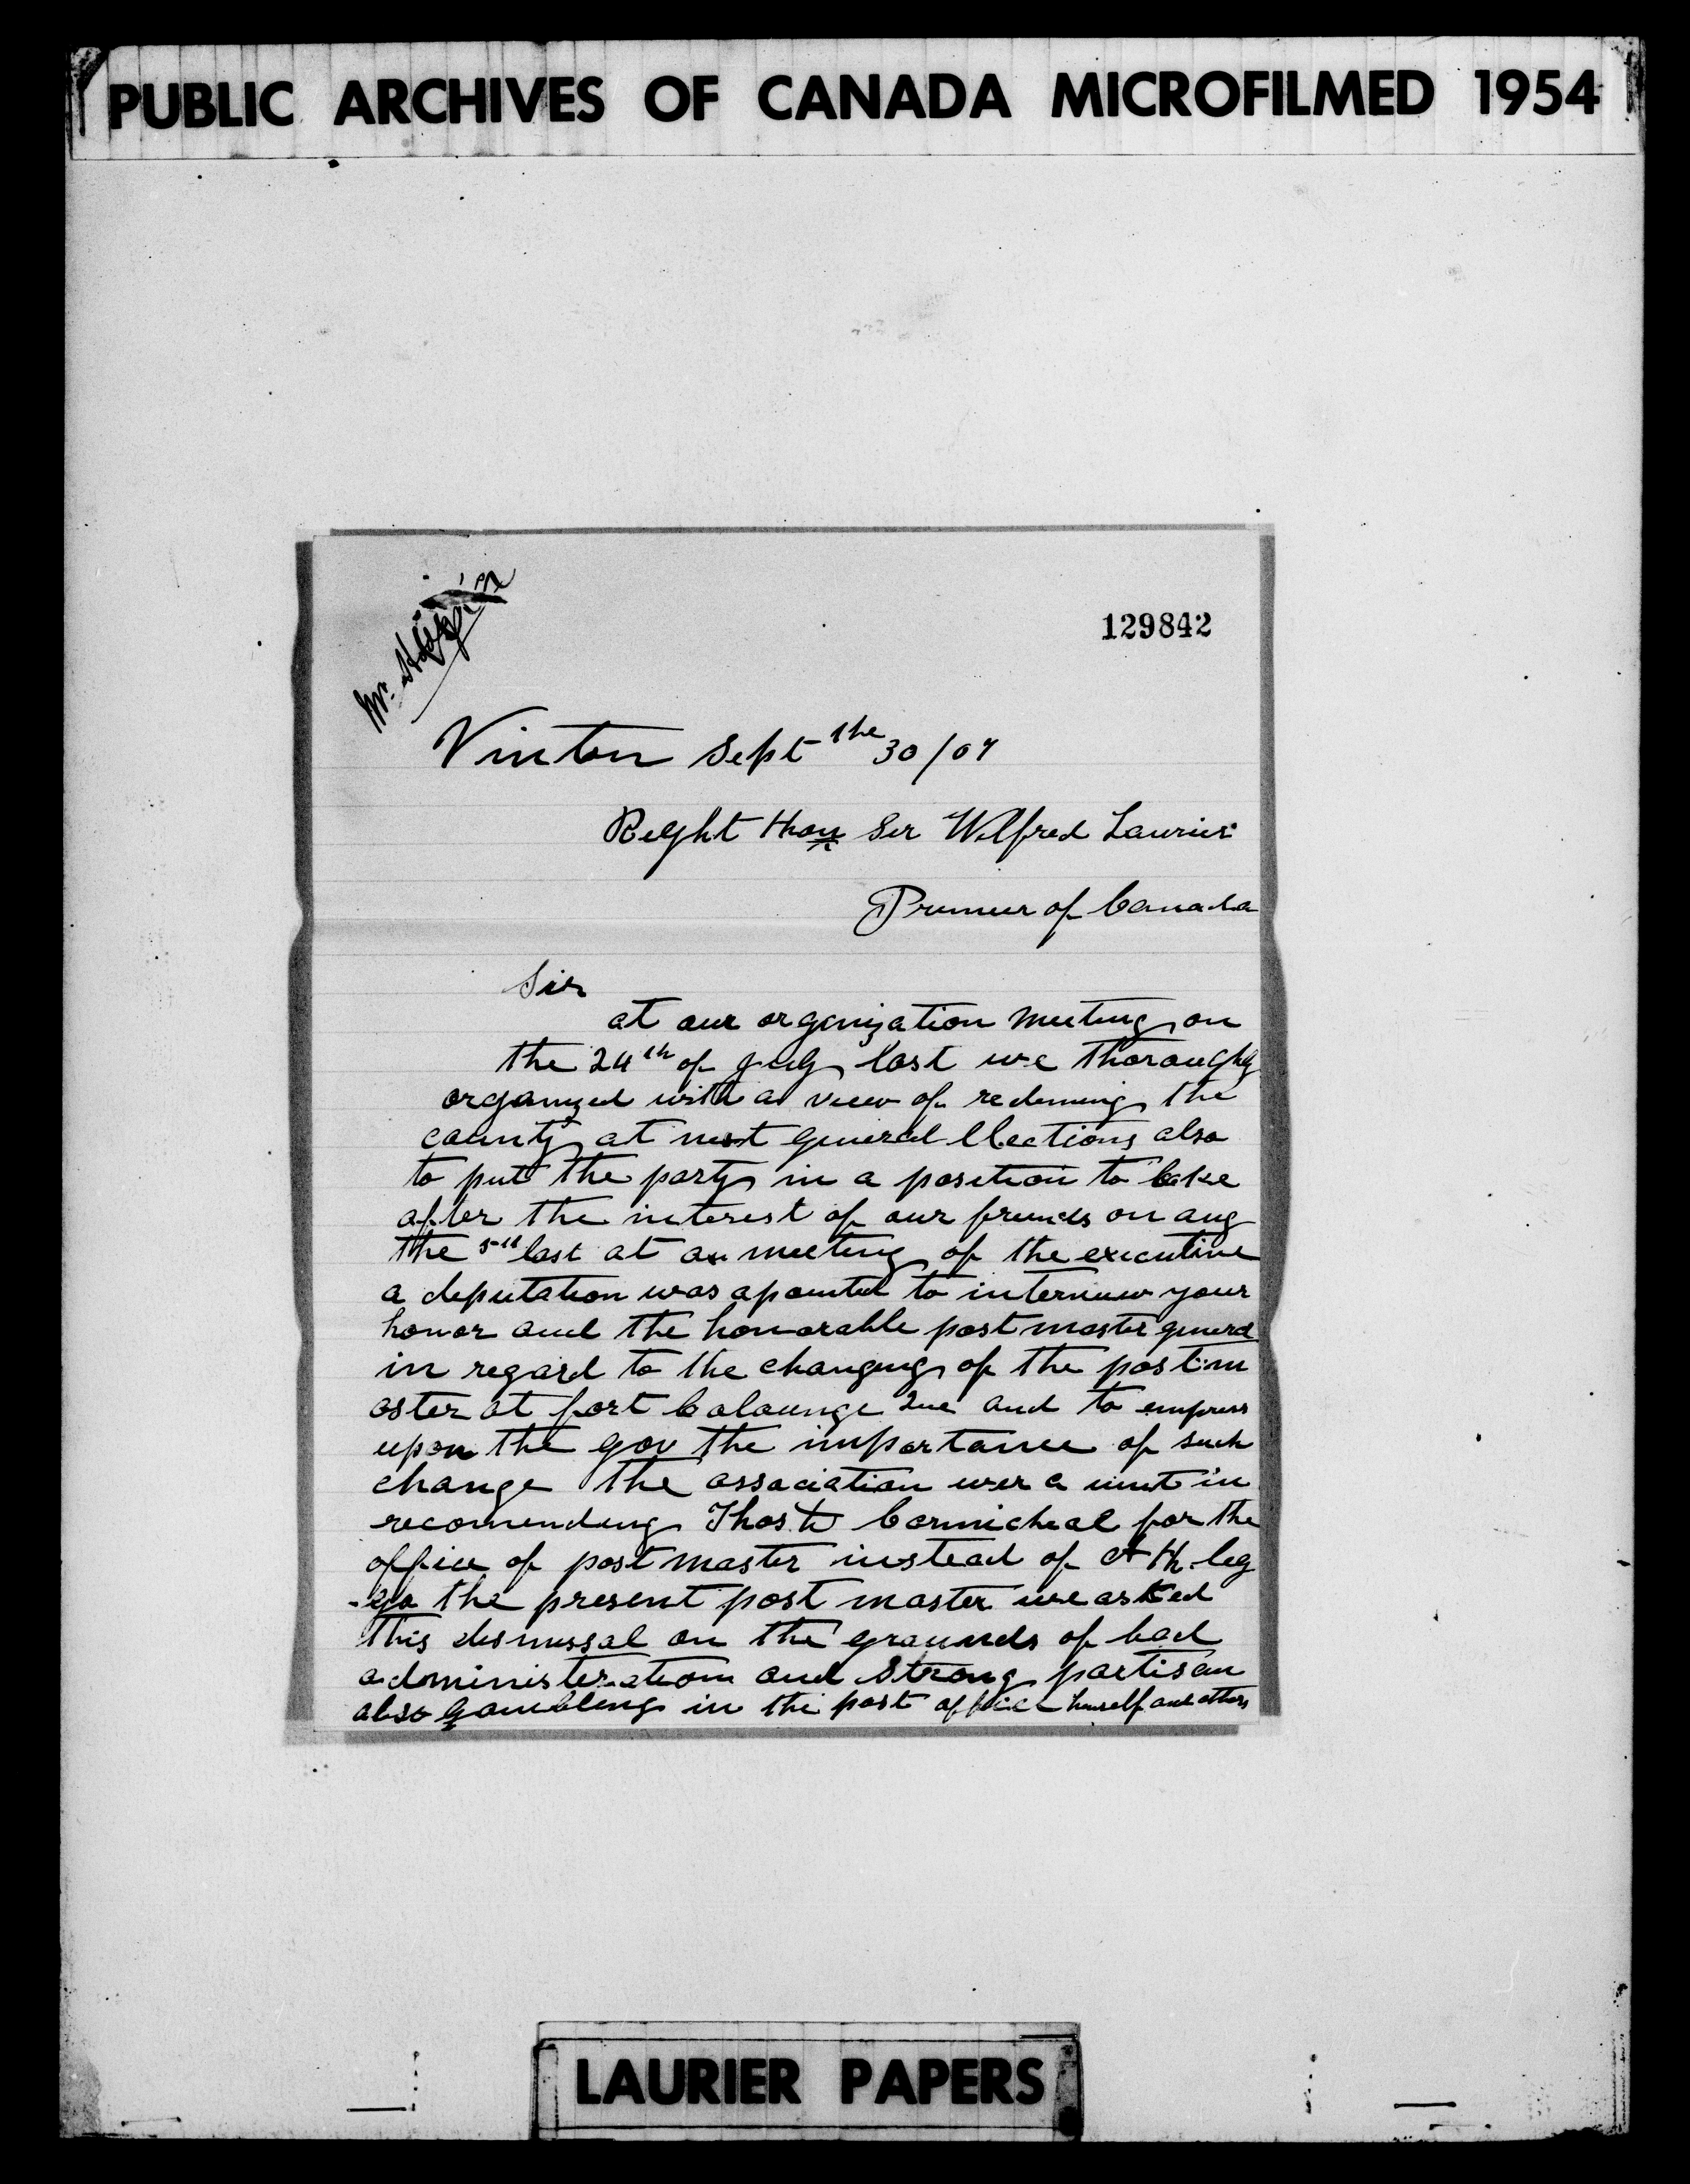 PUBLIC ARCHIVES OF CANADA MICROFILMED 1954
129842
Mr.
Vinton Sept the 30/07
Reght Hon Ser Wilfred Laurier
Premeer of Canada
Sir
at our organization meeting on
the 24th of july last we thoroughly
organized with a view of redeming the
county at next general Elections also
to put the party in a position to look
after the interest of our friends on aug
the 5th last at a meeting of the executive
a deputation was apointed to interview your
honor and the honorable post master general
in regard to the changing of the postm
aster at fort Colounge Que and to empress
upon the gov the importance of such
change the association wer a unit in
recomending Thos Carmicheal for the
office of post master instead of
the present post master we asked
this dismissal on the grounds of bad
administeration and strong partisan
also gambling in the post office himself and others
LAURIER PAPERS